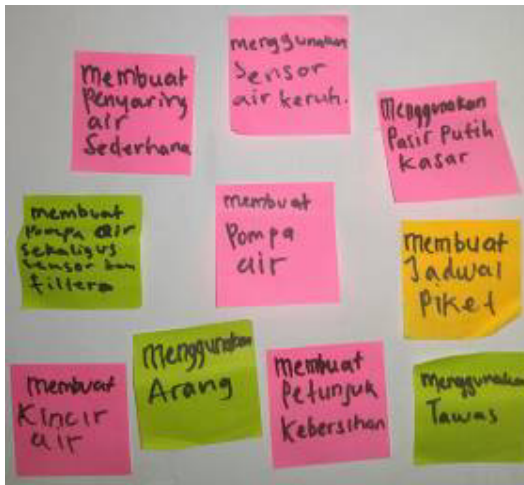 Membuat
Penyaring
air
Sederhana
menggunakan
Sensor
air keruh.
Menggunakan
Pasir Putih
Kasar
membuat
Pompa air
sekaligus
sensor dan
filter
membuat
Pompa
air
Membuat
Jadwal
Piket
membuat
Kincir
air
Menggunakan
Arang
Membuat
Petunjuk
Kebersihan
Menggunakan
Tawas